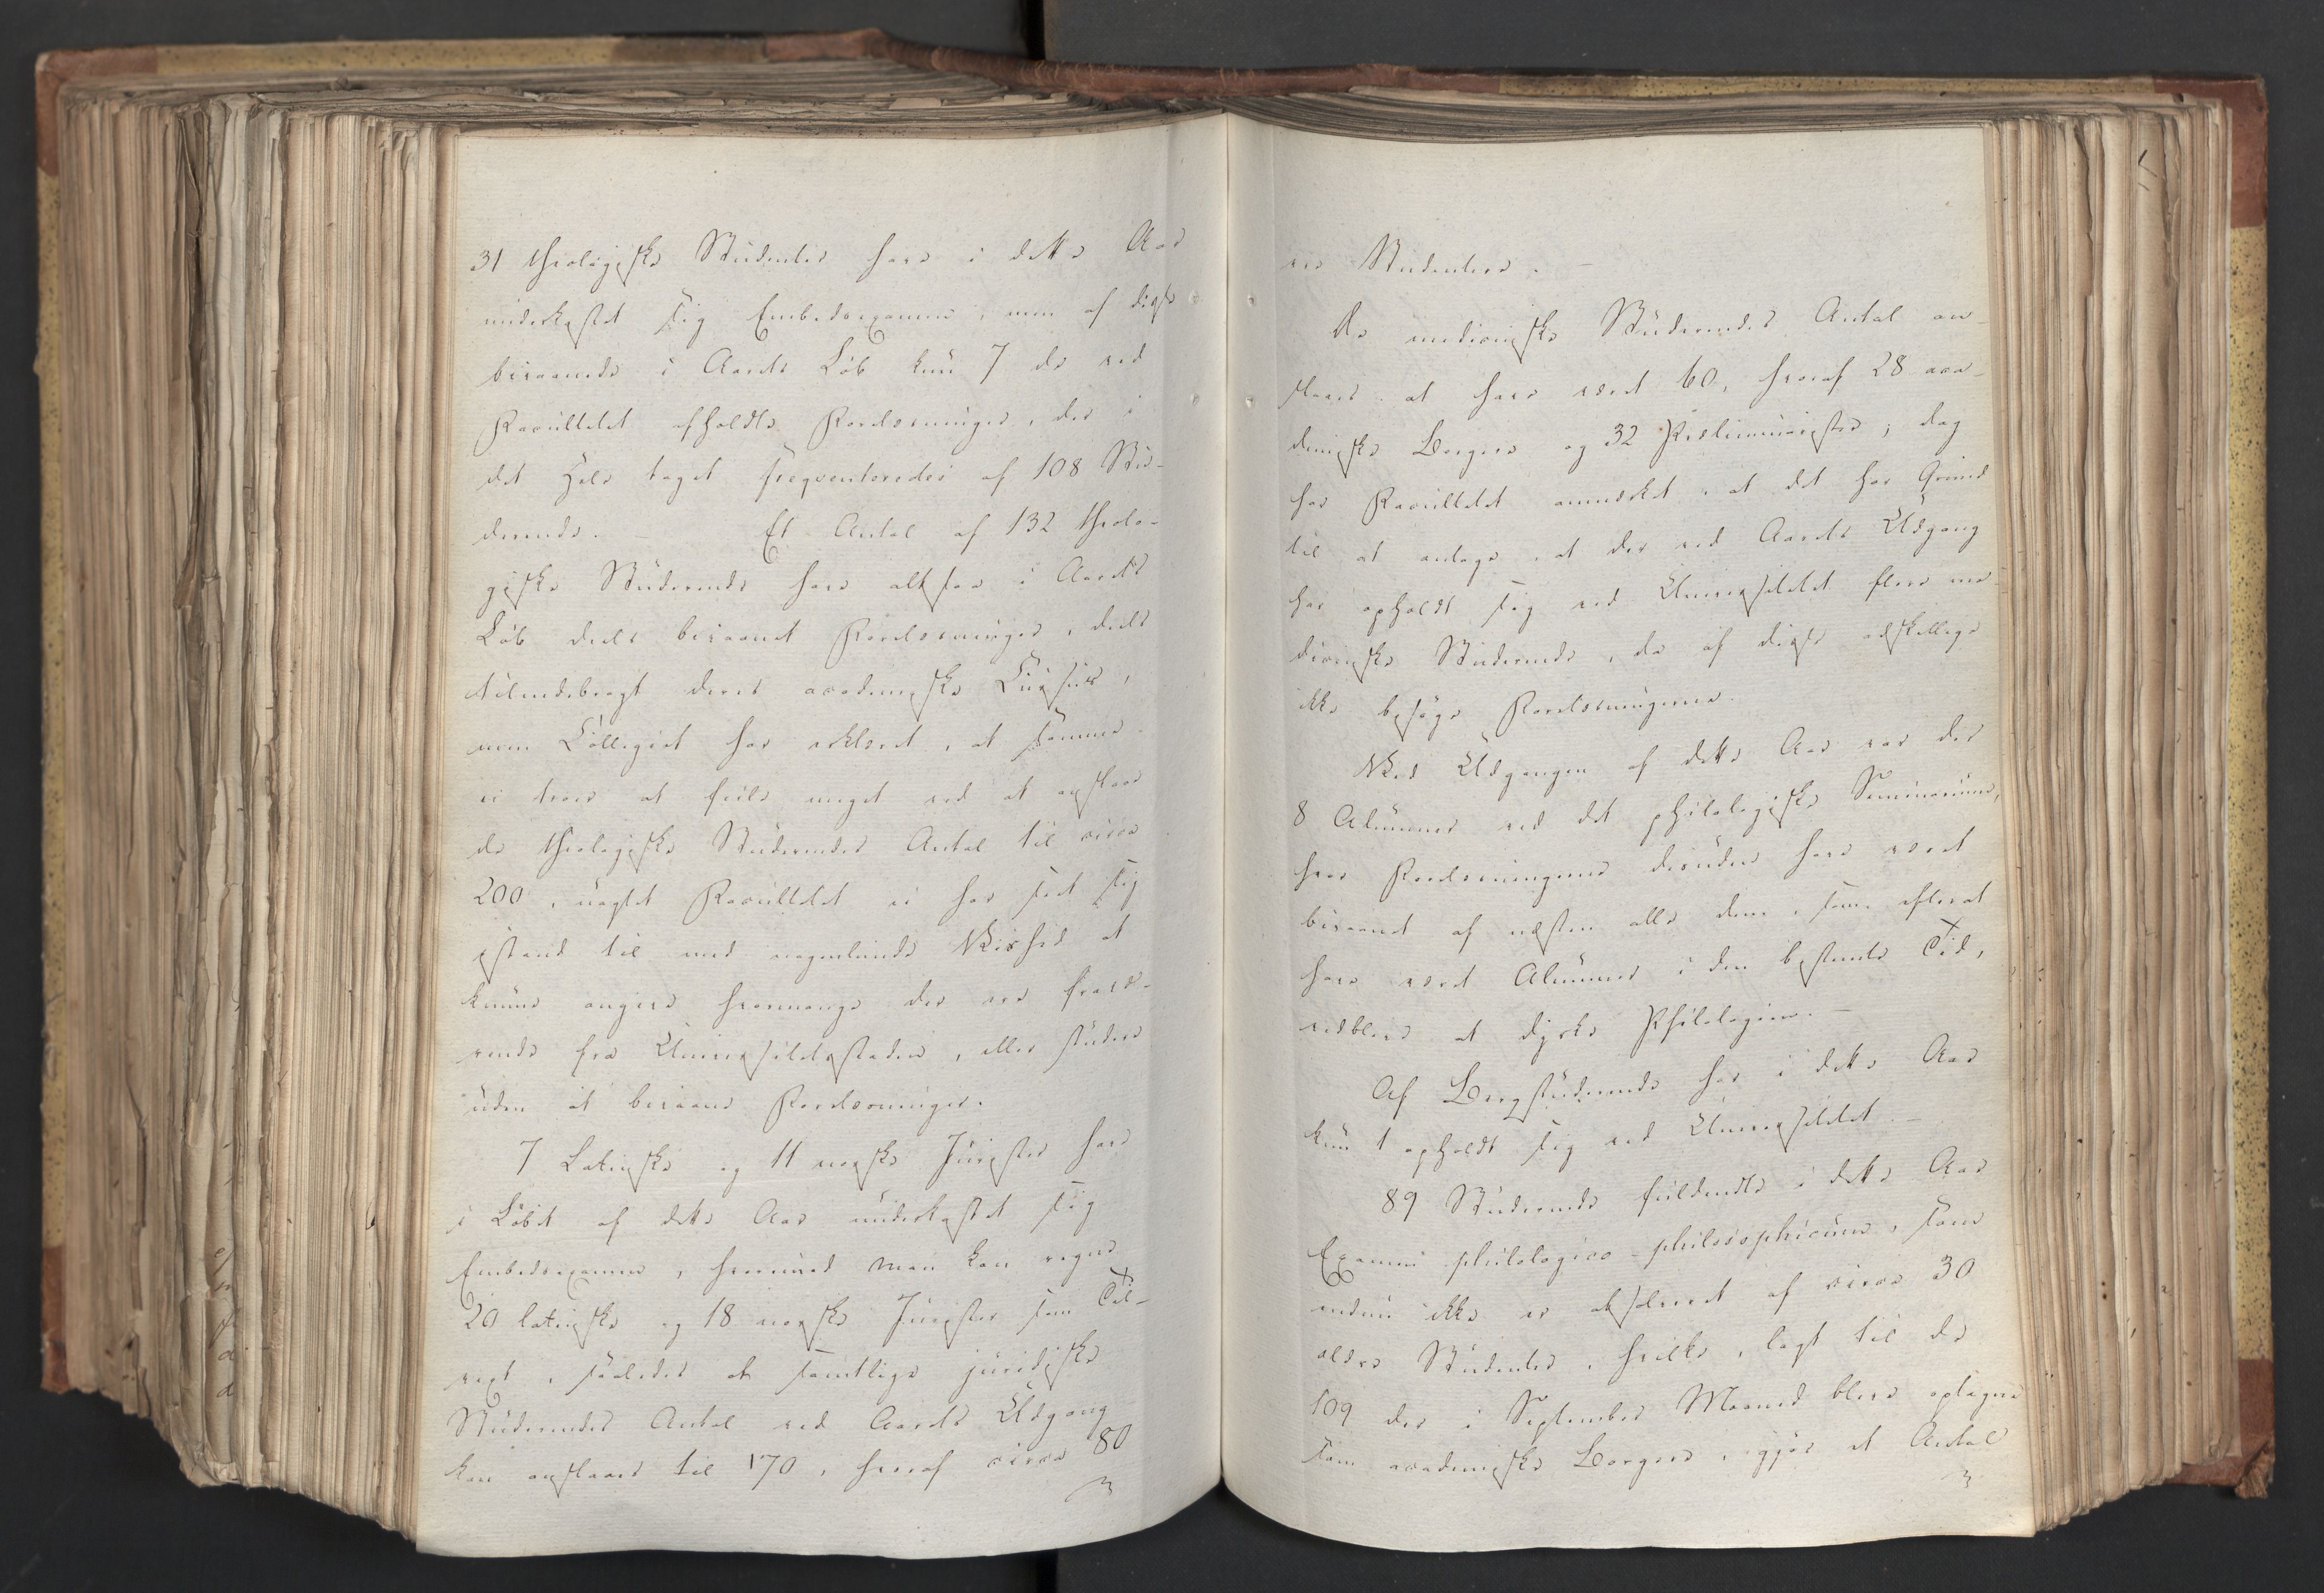 31 theologiske Studenter have i dette Aar
underkastet sig Embedsexamen, men af disse
bivaanede i Aarets Løb kun 7 de ved
Facultetet afholdte Forelæsninger, der i
det Hele taget freqventeredes af 108 Stu-
derende. — Et Antal af 132 theolo-
giske Studerende have altsaa i Aarets
Løb deels bivaanet Forelæsninger, deels
tilendebragt deres academiske Cursus,
men Collegiet har erklæret, at samme
ei troer at feile meget ved at anslaae
de theologiske Studerendes Antal til circa
200, uagtet Facultetet ei har seet sig
istand til med nogenlunde Vished at
kunne angive hvormange der ere fravæ-
rende fra Universitetsstaden, eller studere
uden at bivaane Forelæsninger.
7 Latinske og 11 norske Jurister have
i Løbet af dette Aar underkastet sig
Embedsexamen, hvorimod man kan regne
20 latinske og 18 norske Jurister som Til-
vext, saaledes at samtlige juridiske
Studerendes Antal ved Aarets Udgang
kan anslaaes til 170, hvoraf circa 80
ere Studenter. —
De medicinske Studerendes Antal an-
slaaes at have været 60, hvoraf 28 aca-
demiske Borgere og 32 Præliminarister; dog
har Facultetet anmærket, at det har Grund
til at antage, at der ved Aarets Udgang
har opholdt sig ved Universitetet flere me-
dicinske Studerende, da af disse adskillige
ikke besøge Forelæsningerne.
Ved Udgangen af dette Aar var der
8 Alumner ved det philologiske Seminarium,
hvor Forelæsningerne desuden have været
bivaanet af næsten alle dem, som efterat
have været Alumner i den bestemte Tid,
vedblive at dyrke Philologien. —
Af Bergstuderende har i dette Aar
kun 1 opholdt sig ved Universitetet. —
89 Studerende fuldendte i dette Aar
Examen philologico-philosophicum, som
endnu ikke er absolveret af circa 30
ældre Studenter, hvilke, lagt til de
109 der i September Maaned bleve optagne
som academiske Borgere, gjør et Antal